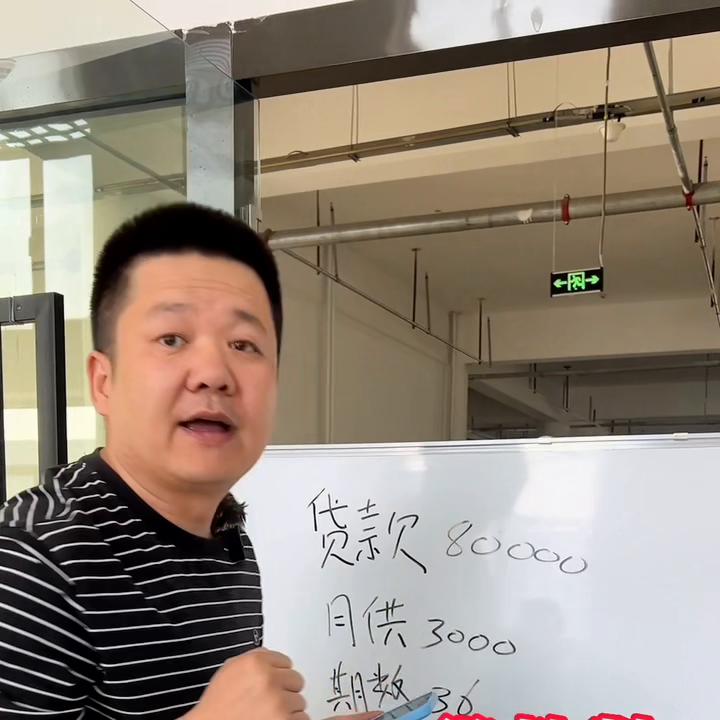 贷款 80000
月供 3000
期数 36